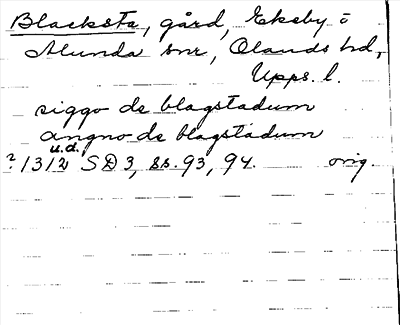 Blacksta, gård, Ekeby i
Alunda snr, Olands hd,
Upps. l.
siggo de blagstadum
angno de blagstadum
u.d.
? 1312 SD 3, ss. 93, 94. orig.